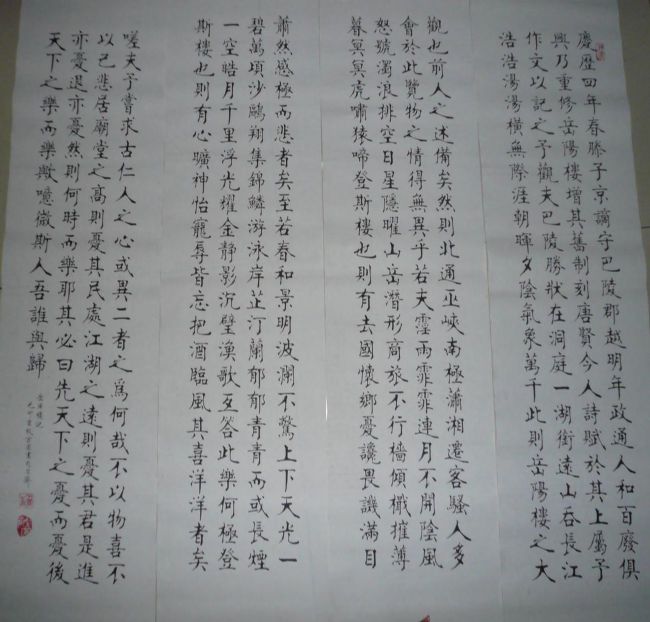 慶歷四年春滕子京謫守巴陵郡越明年政通人和百廢俱
興乃重修岳陽樓增其舊制刻唐賢今人詩賦於其上屬予
作文以記之予觀夫巴陵勝狀在洞庭一湖銜遠山吞長江
浩浩湯湯橫無際涯朝暉夕陰氣象萬千此則岳陽樓之大
觀也前人之述備矣然則北通巫峽南極瀟湘遷客騷人多
會於此覽物之情得無異乎若夫霪雨霏霏連月不開陰風
怒號濁浪排空日星隱曜山岳潛形商旅不行檣傾檝摧薄
暮冥冥虎嘯猿啼登斯樓也則有去國懷鄉憂讒畏譏滿目
蕭然感極而悲者矣至若春和景明波瀾不驚上下天光一
碧萬頃沙鷗翔集錦鱗游泳岸芷汀蘭郁郁青青而或長煙
一空皓月千里浮光耀金靜影沉璧漁歌互答此樂何極登
斯樓也則有心曠神怡寵辱皆忘把酒臨風其喜洋洋者矣
嗟夫予嘗求古仁人之心或異二者之爲何哉不以物喜不
以己悲居廟堂之高則憂其民處江湖之遠則憂其君是進
亦憂退亦憂然則何時而樂耶其必曰先天下之憂而憂後
天下之樂而樂歟噫微斯人吾誰與歸
岳陽樓記